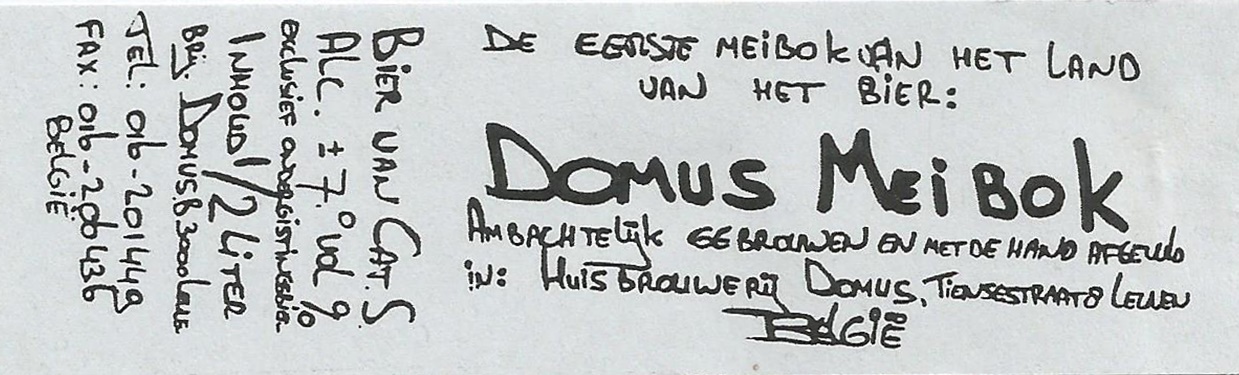 DE EERSTE MEIBOK VAN HET LAND
VAN HET BIER:
DOMUS MEIBOK
AMBACHTELIJK GEBROUWEN EN MET DE HAND AFGEVULD
IN: HUISBROUWERIJ DOMUS, TIENSESTRAAT 8 LEUVEN
BELGIË
BIER VAN CAT. S.
ALC. ± 7.° vol %
INHOUD 1/2 LITER
BRIJ. DOMUS.B.3000 Leuven
TEL: 016-201449
FAX: 016-200436
BELGIË